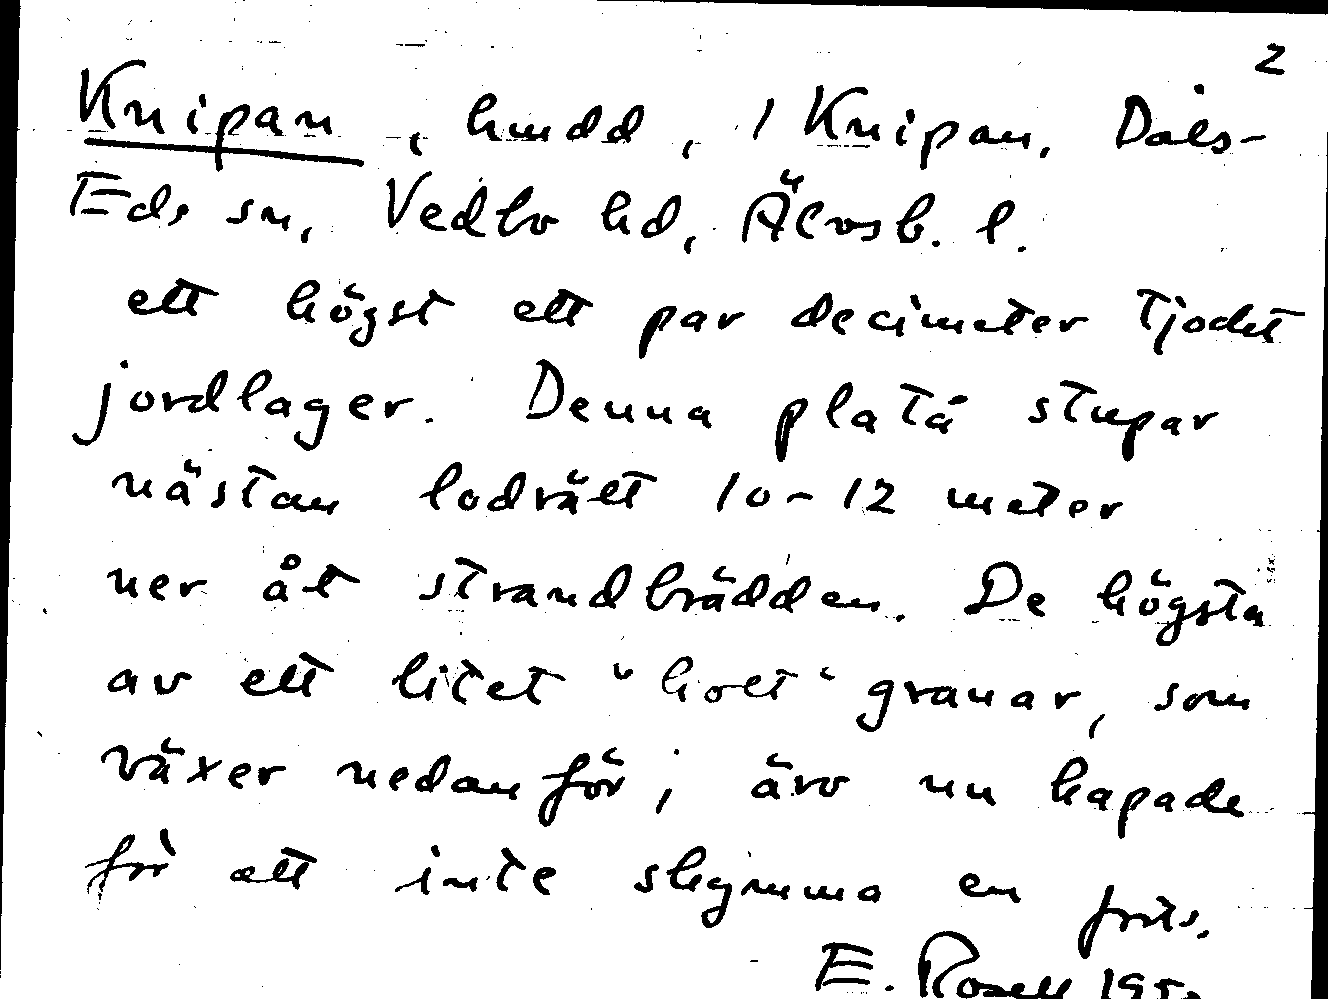 2
Knipan, hmdd, 1 Knipan, Dals-
Eds sn, Vedbo hd, Älvsb. l.
ett högst ett par decimeter tjockt
jordlager. Denna platå stupar
nästan lodrätt 10-12 meter
ner åt strandbrädden. De högsta
av ett litet "holt" granar, som
växer nedanför, äro nu kapade
för att inte skymma en
E. Rosell